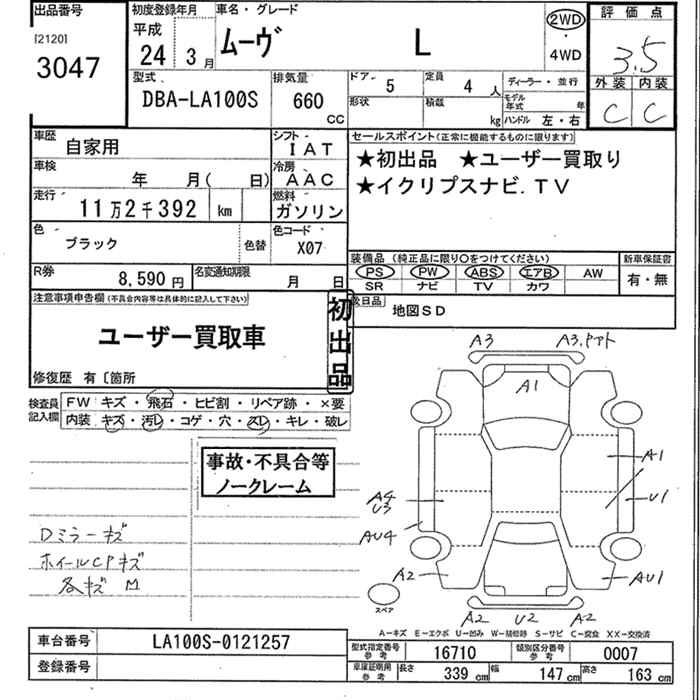 出品番号 初度登録年月 車名・グレード 評価点
[2120] 3047
平成 24 3月 ムーヴ L 2WD・4WD 3.5
型式 DBA-LA100S 排気量 660 CC
ドアー 5 定員 4人 ディーラー・並行
形状 積載 kg モデル年式 年 ハンドル 左・右
外装 内装
C C
車歴 自家用 シフト IAT
車検 年 月( 日) 冷房 AAC
走行 11万2千392 km 燃料 ガソリン
色 ブラック 色替 色コード X07
R券 8,590円 名変通知期限 月 日
セールスポイント(正常に機能するものに限ります)
★初出品 ★ユーザー買取り
★イクリプスナビ.TV
装備品 (純正品に限り○をつけてください) 新車保証書
PS PW ABS エアB AW 有・無
SR ナビ TV カワ
後日品 地図SD
注意事項申告欄(不具合内容等は具体的に記入して下さい)
初出品
ユーザー買取車
修復歴 有〔箇所
検査員記入欄
FW キズ・飛石・ヒビ割・リペア跡・×要
内装 キズ・汚レ・コゲ・穴・スレ・キレ・破レ
事故・不具合等
ノークレーム
Dミラーキズ
ホイールCPキズ
各キズ M
A3 A3.ドアト
A1
A1
A4
U3
U1
AU4
A2 AU1
スペア
A2 U2 A2
A-キズ E-エクボ U-凹み W-補修跡 S-サビ C-腐食 XX-交換済
車台番号 LA100S-0121257
登録番号
型式指定番号参考 16710 類別区分番号参考 0007
車庫証明用参考 長さ 339cm 幅 147cm 高さ 163cm